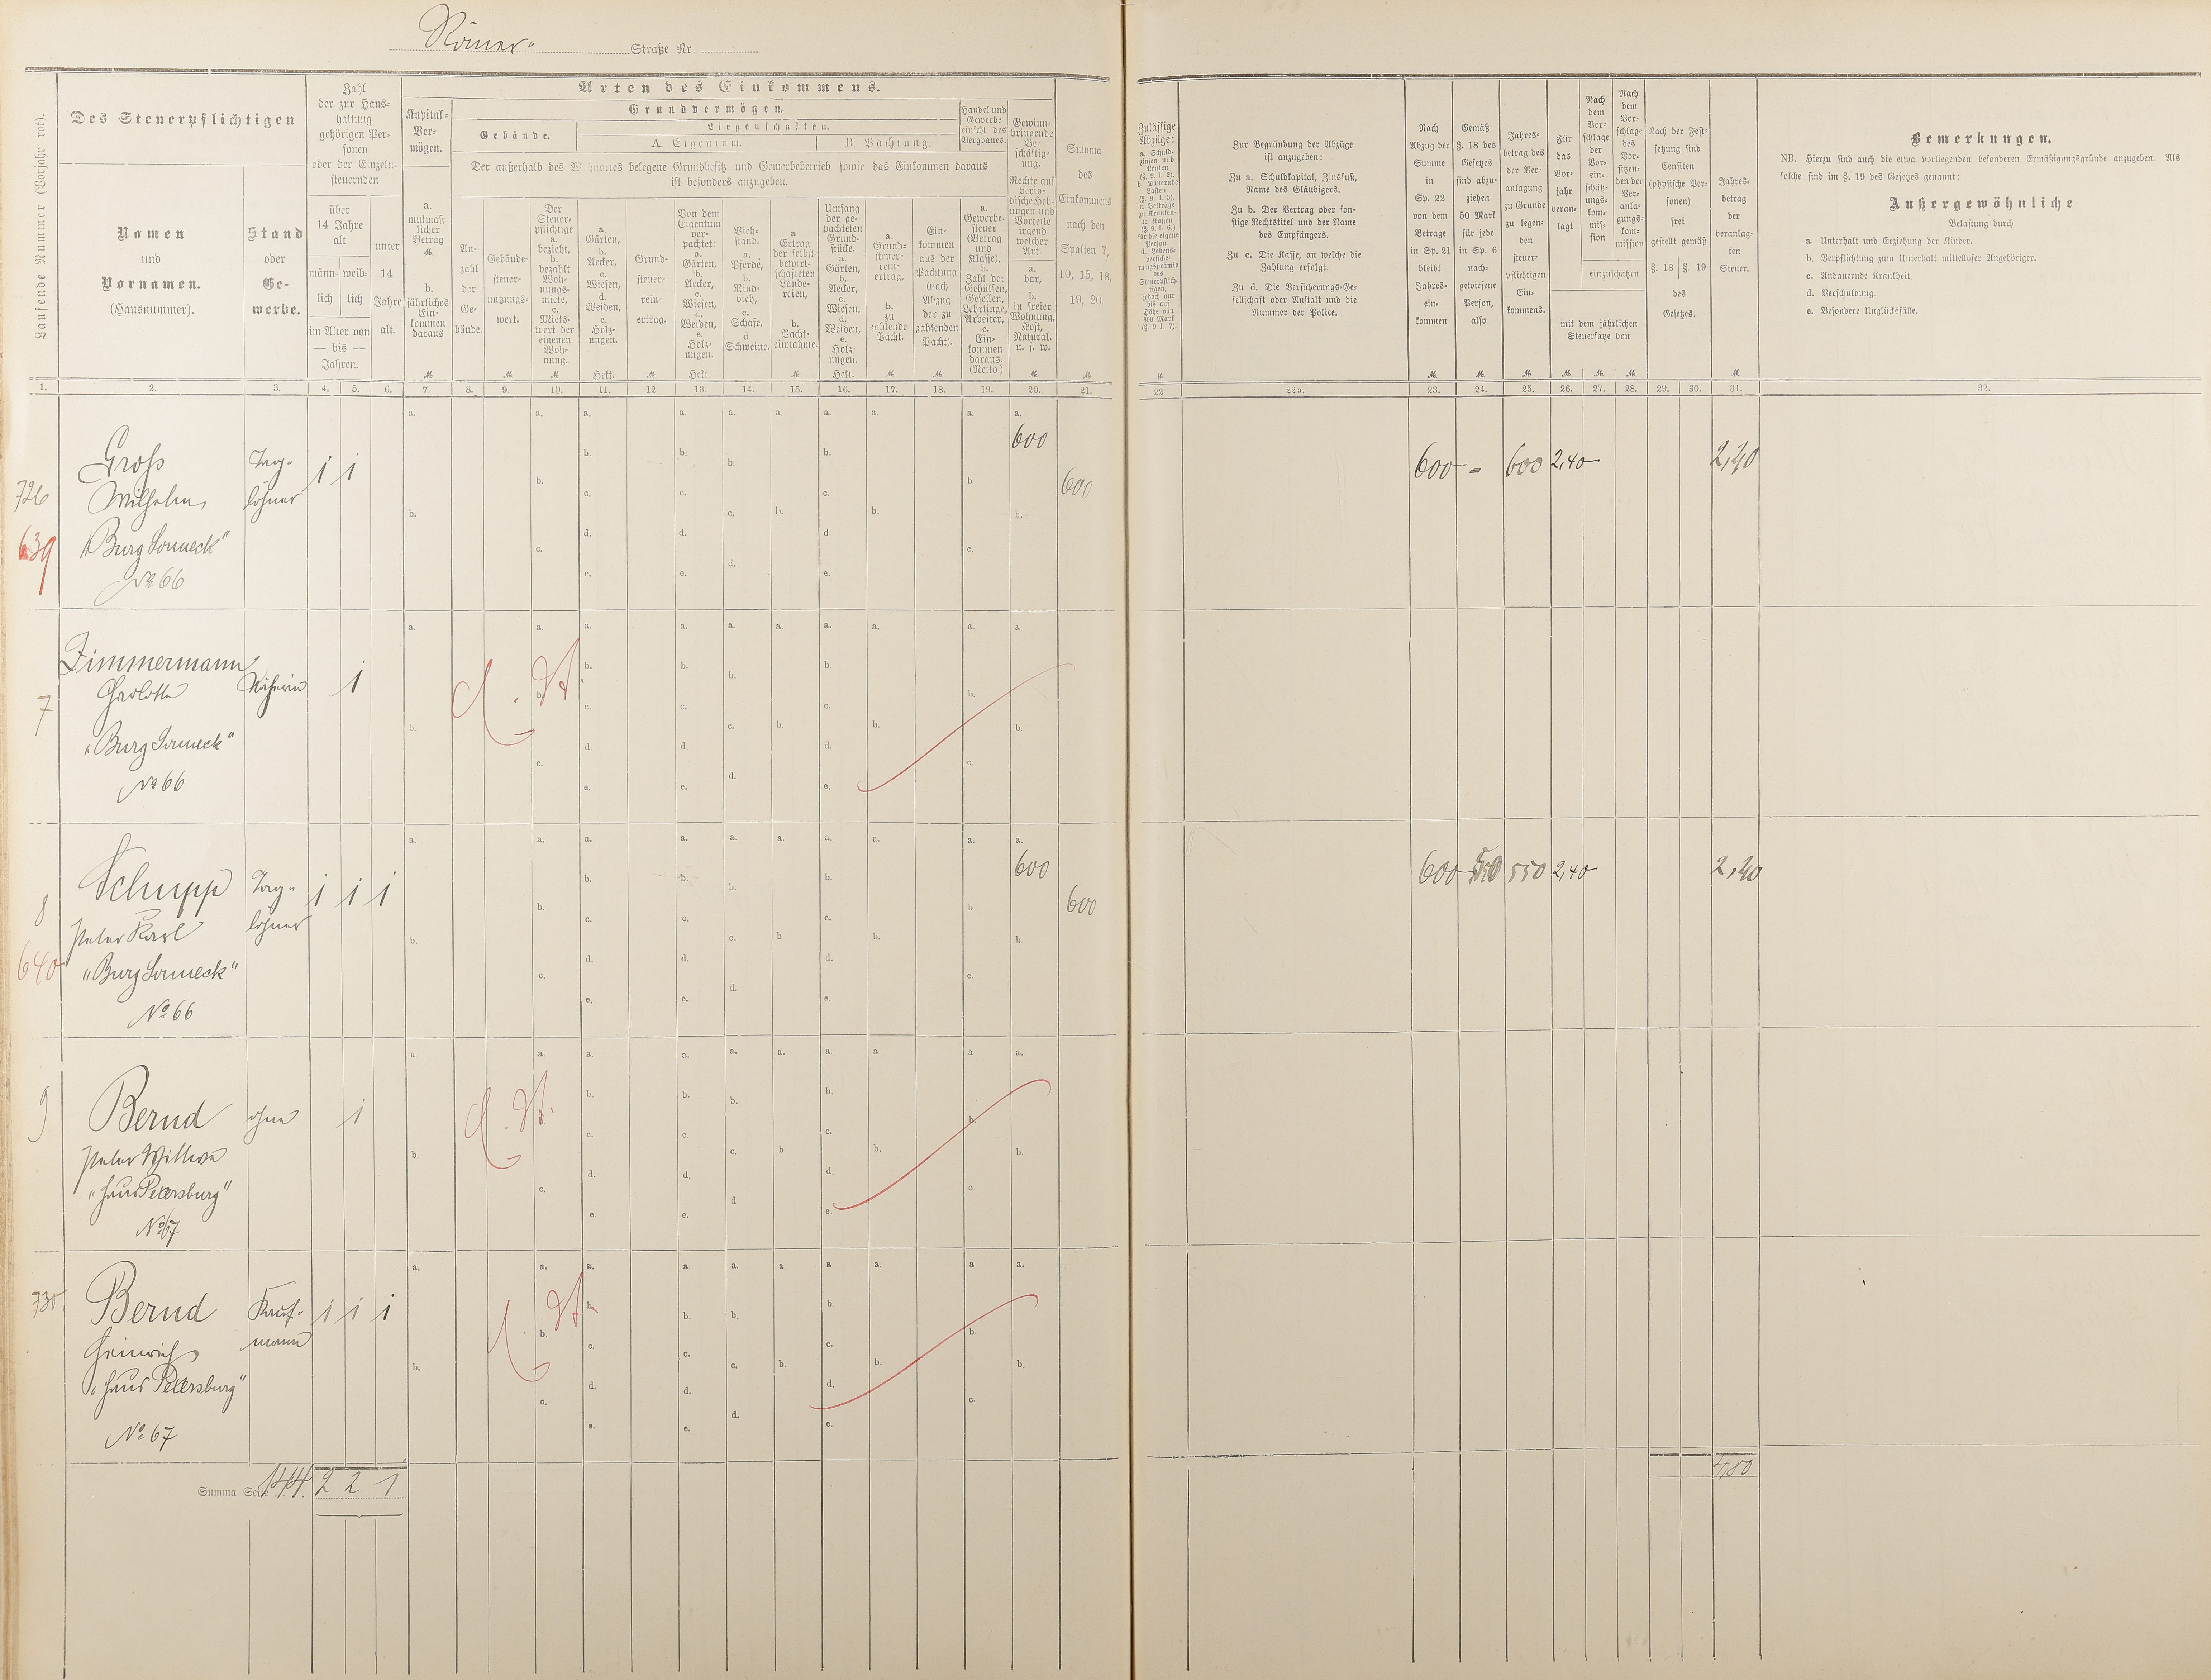 Römer-
Straße Nr.
Laufende Nummer (Vorjahr rot).
Des Steuerpflichtigen
Namen
und
Vornamen.
(Hausnummer).
Stand
oder
Ge-
werbe.
Zahl
der zur Haus-
haltung
gehörigen Per-
sonen
oder der Einzeln-
steuernden
über
14 Jahre
alt
männ-
lich
weib-
lich
im Alter von
— bis —
Jahren.
unter
14
Jahre
alt.
Arten des Einkommens.
Kapital-
Ver-
mögen.
a.
mutmaß-
licher
Betrag
M.
b.
jährliches
Ein-
kommen
daraus
M.
Grundvermögen.
Gebäude.
Liegenschaften.
A. Eigentum.
B. Pachtung.
Der außerhalb des Wohnortes belegene Grundbesitz und Gewerbebetrieb sowie das Einkommen daraus
ist besonders anzugeben.
An-
zahl
der
Ge-
bäude.
Gebäude-
steuer-
nutzungs-
wert.
M.
Der
Steuer-
pflichtige
a.
bezieht,
b.
bezahlt
Woh-
nungs-
miete,
c.
Miets-
wert der
eigenen
Woh-
nung.
M.
a.
Gärten,
b.
Aecker,
c.
Wiesen,
d.
Weiden,
e.
Holz-
ungen.
Hekt.
Grund-
steuer-
rein-
ertrag.
M.
Von dem
Eigentum
ver-
pachtet:
a.
Gärten,
b.
Aecker,
c.
Wiesen,
d.
Weiden,
e.
Holz-
ungen.
Hekt.
Vieh-
stand.
a.
Pferde,
b.
Rind-
vieh,
c.
Schafe,
d.
Schweine.
a.
Ertrag
der selbst-
bewirt-
schafteten
Lände-
reien,
b.
Pacht-
einnahme.
M.
Umfang
der ge-
pachteten
Grund-
stücke.
a.
Gärten,
b.
Aecker,
c.
Wiesen,
d.
Weiden,
e.
Holz-
ungen.
Hekt.
a.
Grund-
steuer-
rein-
ertrag,
b.
zu
zahlende
Pacht.
M.
Ein-
kommen
aus der
Pachtung
(nach
Abzug
der zu
zahlenden
Pacht).
M.
Handel und
Gewerbe
einschl. des
Bergbaues.
a.
Gewerbe-
steuer
(Betrag
und
Klasse),
b.
Zahl der
Gehülfen,
Gesellen,
Lehrlinge,
Arbeiter,
c.
Ein-
kommen
daraus.
(Netto)
Gewinn-
bringende
Be-
schäftig-
ung.
Rechte auf
perio-
dische Heb-
ungen und
Vorteile
irgend
welcher
Art.
a.
bar,
b.
in freier
Wohnung,
Kost,
Natural.
u. s. w.
M.
Summa
des
Einkommens
nach den
Spalten 7,
10, 15, 18,
19, 20.
M.
Zulässige
Abzüge:
a. Schuld-
zinsen und
Renten
(§. 9. I. 2).
b. Dauernde
Lasten
(§. 9. I. 3).
c. Beiträge
zu Kranken-
2c. Kassen
(§. 9. I. 6.)
für die eigene
Person
d. Lebens-
versiche-
rungsprämie
des
Steuerpflich-
tigen,
jedoch nur
bis auf
Höhe von
600 Mark
(§. 9 I. 7).
Zur Begründung der Abzüge
ist anzugeben:
Zu a. Schuldkapital, Zinsfuß,
Name des Gläubigers.
Zu b. Der Vertrag oder son-
stige Rechtstitel und der Name
des Empfängers.
Zu c. Die Kasse, an welche die
Zahlung erfolgt.
Zu d. Die Versicherungs-Ge-
sellschaft oder Anstalt und die
Nummer der Police.
Nach
Abzug der
Summe
in
Sp. 22
von dem
Betrage
in Sp. 21
bleibt
Jahres-
ein-
kommen
M.
Gemäß
§. 18 des
Gesetzes
sind abzu-
ziehen
50 Mark
für jede
in Sp. 6
nach-
gewiesene
Person,
also
M.
Jahres-
betrag des
der Ver-
anlagung
zu Grunde
zu legen-
den
steuer-
pflichtigen
Ein-
kommens.
M.
Für
das
Vor-
jahr
veran-
lagt
Nach
dem
Vor-
schlage
der
Vor-
ein-
schätz-
ungs-
kom-
mis-
sion
Nach
dem
Vor-
schlage
des
Vor-
sitzen-
den der
Ver-
anla-
gungs-
kom-
mission
einzuschätzen
mit dem jährlichen
Steuersatze von
M. M. M.
Nach der Fest-
setzung sind
Censiten
(physische Per-
sonen)
frei
gestellt gemäß
§. 18 §. 19
des
Gesetzes.
Jahres-
betrag
der
veranlag-
ten
Steuer.
M.
Bemerkungen.
NB. Hierzu sind auch die etwa vorliegenden besonderen Ermäßigungsgründe anzugeben. Als
solche sind im §. 19 des Gesetzes genannt:
Außergewöhnliche
Belastung durch
a. Unterhalt und Erziehung der Kinder.
b. Verpflichtung zum Unterhalt mittelloser Angehöriger.
c. Andauernde Krankheit
d. Verschuldung.
e. Besondere Unglücksfälle.
1. 2. 3. 4. 5. 6. 7. 8. 9. 10. 11. 12 13. 14. 15. 16. 17. 18. 19. 20. 21. 22 22a. 23. 24. 25. 26. 27. 28. 29. 30. 31. 32.
726
639
Groß
Wilhelm
"Burg Sonneck"
No 66
Tag-
löhner
1 1
600
600
600 - 600 2,40 2,40
7
Zimmermann
Charlotte
"Burg Sonneck"
No 66
Näherin
1
8
640
Schupp
Peter Karl
"Burg Sonneck"
No 66
Tag-
löhner
1 1 1
600
600
600 50 550 2,40 2,40
9
Bernd
Peter Wittwe
"Haus Petersburg"
No 67
ohne
1
730
Bernd
Heinrich
"Haus Petersburg"
No 67
Kauf-
mann
1 1 1
Summa Seite 144. 2 2 1
4,80